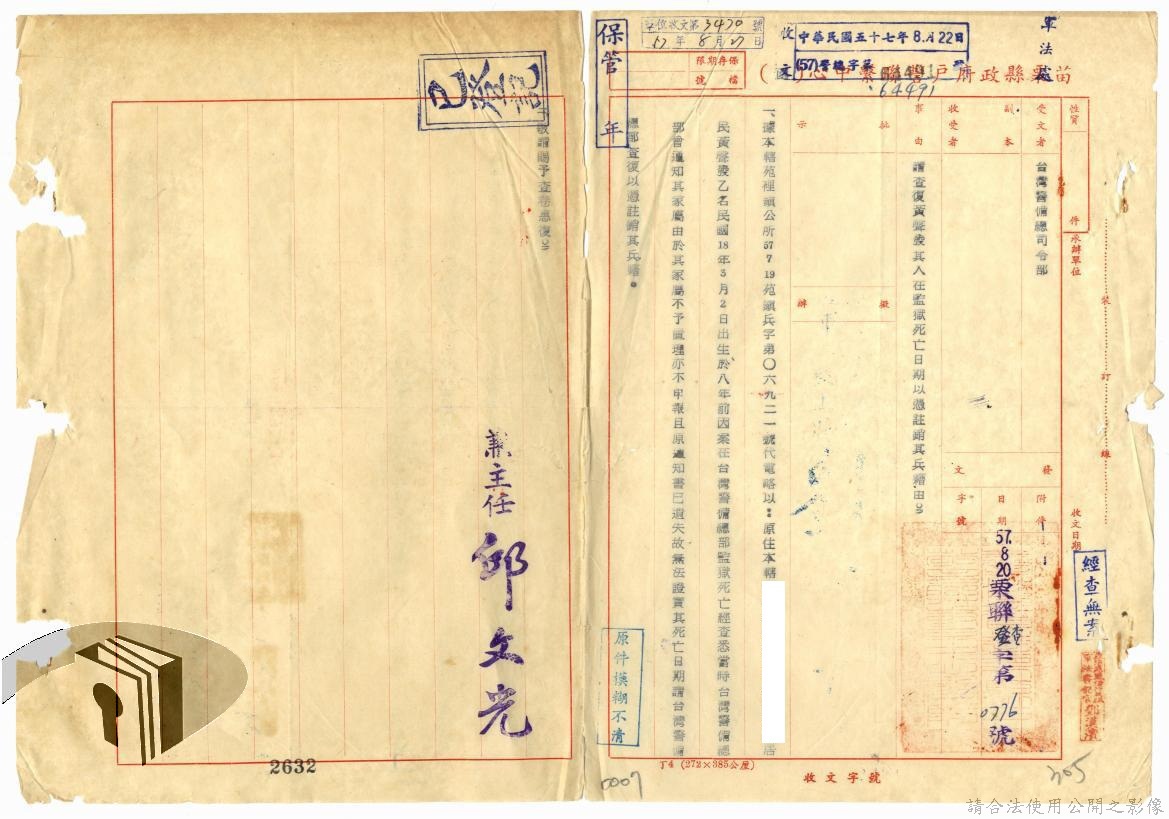 苗栗縣政府戶警聯繫中心
軍法處
收
中華民國五十七年8月22日
(57)警總字第
64491
收文第3470號
57年8月27日
保存期限
檔號
保管 年
性質
件
受文者
台灣警備總司令部
副本
收受者
事由
請查復黃聲發其人在監獄死亡日期以憑註銷其兵籍由。
批示
擬辦
發文
附件
日期
57.8.20
字號
栗聯
字第
0776
號
承辦單位
收文日期
裝
訂
線
經查無案
一、據本轄苑裡鎮公所57 7 19苑鎮兵字第〇六九二一號代電略以：原住本轄
居
民黃聲發乙名民國18年3月2日出生於八年前因案在台灣警備總部監獄死亡經查悉當時台灣警備總
部曾通知其家屬由於其家屬不予置理亦不申報且原通知書已遺失故無法證實其死亡日期請台灣警備
總部查復以憑註銷其兵籍。
二、敬請賜予查卷惠復。
兼主任 邱文光
已登記
原件模糊不清
丁4 (272×385公厘)
收文字號
0007
305
2632
請合法使用公開之影像